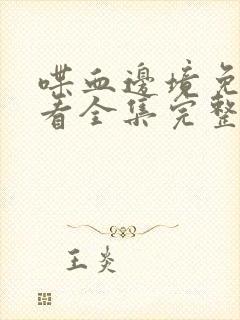 喋血邊境免
看全集完整
王炎